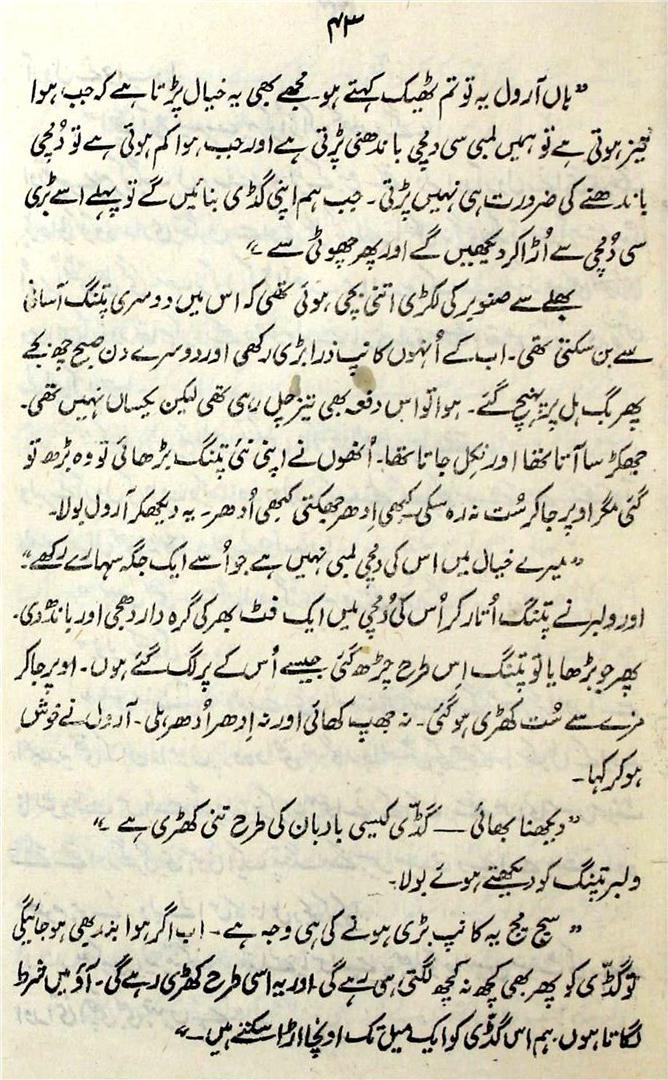 ۴۳
”ہاں آرول یہ تو تم ٹھیک کہتے ہو۔ مجھے بھی یہ خیال پڑتا ہے کہ جب ہوا
تیز ہوتی ہے تو ہمیں لمبی سی دمچی باندھنی پڑتی ہے اور جب ہوا کم ہوتی ہے تو دُمچی
باندھنے کی ضرورت ہی نہیں پڑتی۔ جب ہم اپنی گڈی بنائیں گے تو پہلے اسے بڑی
سی دُمچی سے اُڑا کر دیکھیں گے اور پھر چھوٹی سے “
بھلے سے صنوبر کی لکڑی اتنی بچی ہوئی تھی کہ اس میں دوسری پتنگ آسانی
سے بن سکتی تھی۔ اب کے اُنہوں کانپ ذرا بڑی رکھی اور دوسرے دن صبح چھ بجے
پھر بگ ہل پر پہنچ گئے۔ ہوا تو اس دفعہ بھی تیز چل رہی تھی لیکن یکساں نہیں تھی۔
جھکڑ سا آتا تھا اور نکل جاتا تھا۔ اُنھوں نے اپنی نئی پتنگ بڑھائی تو وہ بڑھ تو
گئی مگر اوپر جا کر سُت نہ رہ سکی۔ کبھی اِدھر جھکتی کبھی اُدھر۔ یہ دیکھکر آرول بولا۔
”میرے خیال میں اس کی دُمچی لمبی نہیں ہے جو اُسے ایک جگہ سہارے رکھے“
اور ولبر نے پتنگ اُتار کر اُس کی دُمچی میں ایک فٹ بھر کی گرہ دار دھجی اور باندھدی۔
پھر جو بڑھایا تو پتنگ اِس طرح چڑھ گئی جیسے اُس کے پر لگ گئے ہوں۔ اوپر جا کر
مزے سے سُت کھڑی ہو گئی۔ نہ جھپ کھائی اور نہ اِدھر اُدھر ہلی۔ آرول نے خوش
ہو کر کہا۔
”دیکھنا بھائی — گڈّی کیسی بادبان کی طرح تنی کھڑی ہے “
ولبر پتنگ کو دیکھتے ہوئے بولا۔
” سچ مچ یہ کانپ بڑی ہونے کی ہی وجہ ہے۔ اب اگر ہوا بند بھی ہو جائیگی
تو گڈّی کو پھر بھی کچھ نہ کچھ لگتی ہی رہے گی اور یہ اسی طرح کھڑی رہے گی۔ آؤ میں شرط
لگاتا ہوں۔ ہم اس گڈّی کو ایک میل تک اونچا اڑا سکتے ہیں۔“